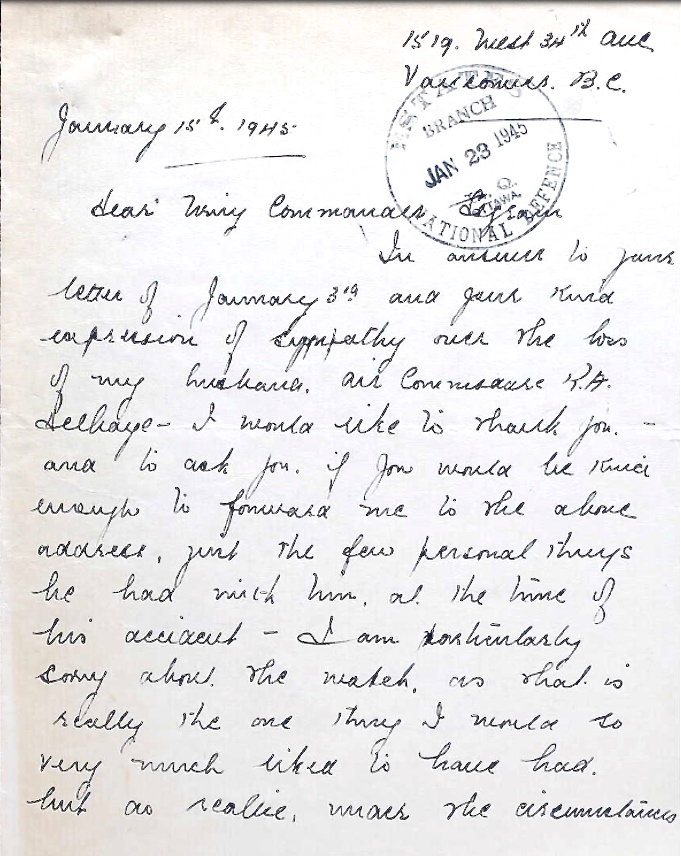 1519. West 34th Ave
Vancouver. B.C.
ESTATES
BRANCH
JAN 23 1945
OTTAWA.
NATIONAL DEFENCE
January 15th. 1945
Dear Wing Commander
In answer to your
letter of January 3rd and your kind
expression of sympathy over the loss
of my husband. Air Commodore K.A.
I would like to thank you. -
and to ask you. if you would be kind
enough to forward me to the above
address, just the few personal things
he had with him, at the time of
his accident - I am particularly
sorry about the watch, as that is
really the one thing I would so
very much liked to have had.
but as realise, under the circumstances